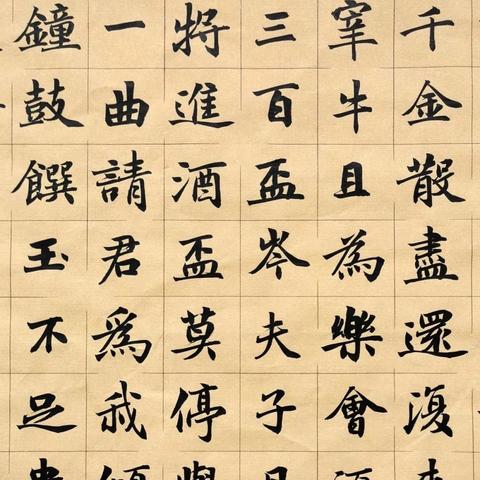 千金散盡還復
宰牛且為樂會
三百盃岑夫子
將進酒盃莫停與
一曲請君爲我傾
鐘鼓饌玉不足貴